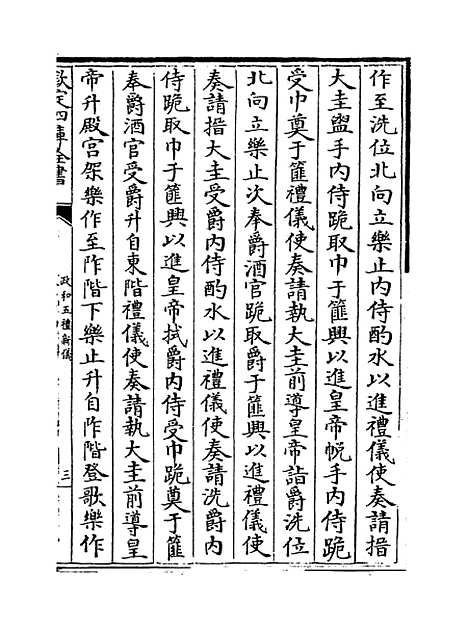 作至洗位北向立樂止内侍酌水以進禮儀使奏請搢
大圭盥手内侍跪取巾于篚興以進皇帝帨手内侍跪
受巾奠于篚禮儀使奏請執大圭前導皇帝詣爵洗位
北向立樂止次奉爵酒官跪取爵于篚興以進禮儀使
奏請搢大圭受爵内侍酌水以進禮儀使奏請洗爵内
侍跪取巾于篚興以進皇帝拭爵内侍受巾跪奠于篚
奉爵酒官受爵升自東階禮儀使奏請執大圭前導皇
帝升殿宫架樂作至阼階下樂止升自阼階登歌樂作
欽定四庫全書
政和五禮新儀
三